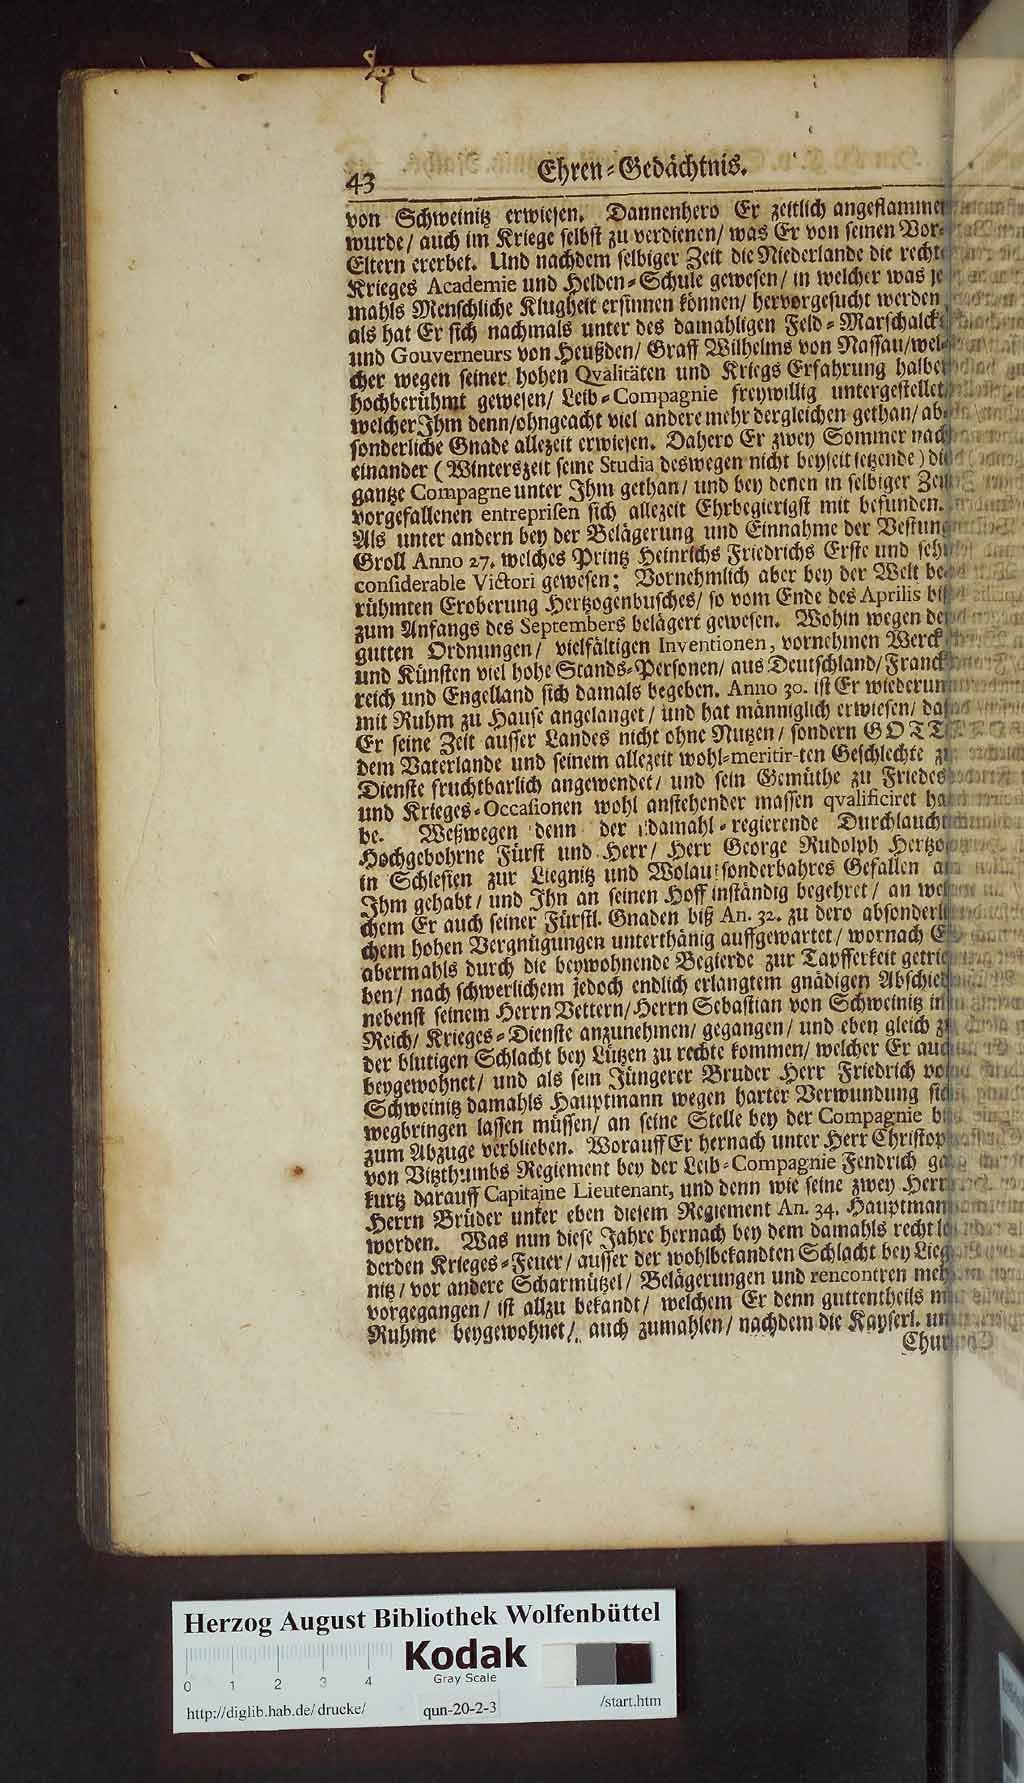 43
Ehren-Gedächtnis.
von Schweinitz erwiesen. Dannenhero Er zeitlich angeflammet
wurde/ auch im Kriege selbst zu verdienen/ was Er von seinen Vor-
Eltern ererbet. Und nachdem selbiger Zeit die Niederlande die rechte
Krieges Academie und Helden-Schule gewesen/ in welcher was je-
mahls Menschliche Klugheit ersinnen können/ hervorgesucht werden
als hat Er sich nachmals unter des damahligen Feld-Marschalcks
und Gouverneurs von Heußden/ Graff Wilhelms von Nassau/wel-
cher wegen seiner hohen Qvalitäten und Kriegs Erfahrung halber
hochberühmt gewesen/ Leib-Compagnie freywillig untergestellet
welcher Jhm denn/ohngeacht viel andere mehr dergleichen gethan/ ab-
sonderliche Gnade allezeit erwiesen. Dahero Er zwey Sommer nach
einander (Winterszeit seine Studia deswegen nicht beyseit setzende) die
gantze Compagne unter Jhm gethan/ und bey denen in selbiger Zeit
vorgefallenen entreprisen sich allezeit Ehrbegierigst mit befunden.
Als unter andern bey der Belägerung und Einnahme der Vestung
Groll Anno 27. welches Printz Heinrichs Friedrichs Erste und sehr
considerable Victori gewesen; Vornehmlich aber bey der Welt be-
rühmten Eroberung Hertzogenbusches/ so vom Ende des Aprilis biß
zum Anfangs des Septembers belägert gewesen. Wohin wegen der
gutten Ordnungen/ vielfältigen Inventionen, vornehmen Werck
und Künsten viel hohe Stands-Personen/ aus Deutschland/ Franck-
reich und Engelland sich damals begeben. Anno 30. ist Er wiederum
mit Ruhm zu Hause angelanget/ und hat männiglich erwiesen/ daß
Er seine Zeit ausser Landes nicht ohne Nutzen/ sondern GOTT
dem Vaterlande und seinem allezeit wohl-meritir-ten Geschlechte zu
Dienste fruchtbarlich angewendet/ und sein Gemüthe zu Friedes
und Krieges-Occasionen wohl anstehender massen qvalificiret ha-
be. Weßwegen denn der damahl-regierende Durchlaucht
Hochgebohrne Fürst und Herr/ Herr George Rudolph Hertzog
in Schlesien zur Liegnitz und Wolau sonderbahres Gefallen an
Jhm gehabt/ und Jhn an seinen Hoff inständig begehret/ an wel-
chem Er auch seiner Fürstl. Gnaden biß An. 32. zu dero absonderli-
chem hohen Vergnügungen unterthänig auffgewartet/ wornach Er
abermahls durch die beywohnende Begierde zur Tapfferkeit getrie-
ben/ nach schwerlichem jedoch endlich erlangtem gnädigen Abschied
nebenst seinem Herrn Vettern/ Herrn Sebastian von Schweinitz ins
Reich/ Krieges-Dienste anzunehmen/ gegangen/ und eben gleich zu
der blutigen Schlacht bey Lützen zu rechte kommen/ welcher Er auch
beygewohnet/ und als sein Jüngerer Bruder Herr Friedrich von
Schweinitz damahls Hauptmann wegen harter Verwundung sich
wegbringen lassen müssen/ an seine Stelle bey der Compagnie biß
zum Abzuge verblieben. Worauff Er hernach unter Herr Christoph
von Vitzthumbs Regiement bey der Leib-Compagnie Fendrich
kurtz darauff Capitaine Lieutenant, und denn wie seine zwey Herr
Herrn Brüder unter eben diesem Regiement An. 34. Hauptmann
worden. Was nun diese Jahre hernach bey dem damahls recht lo-
derden Krieges-Feuer/ ausser der wohlbekandten Schlacht bey Lieg-
nitz/ vor andere Scharmützel/ Belägerungen und rencontren mehr
vorgegangen/ ist allzu bekandt/ welchem Er denn guttentheils mit
Ruhme beygewohnet/ auch zumahlen/ nachdem die Kayserl. und
Chur
Herzog August Bibliothek Wolfenbüttel
0 1 2 3 4
Kodak
Gray Scale
http://diglib.hab.de/drucke/ qun-20-2-3 /start.htm